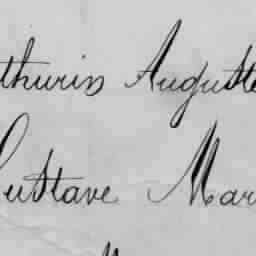 thurin Auguste
Gustave Mar